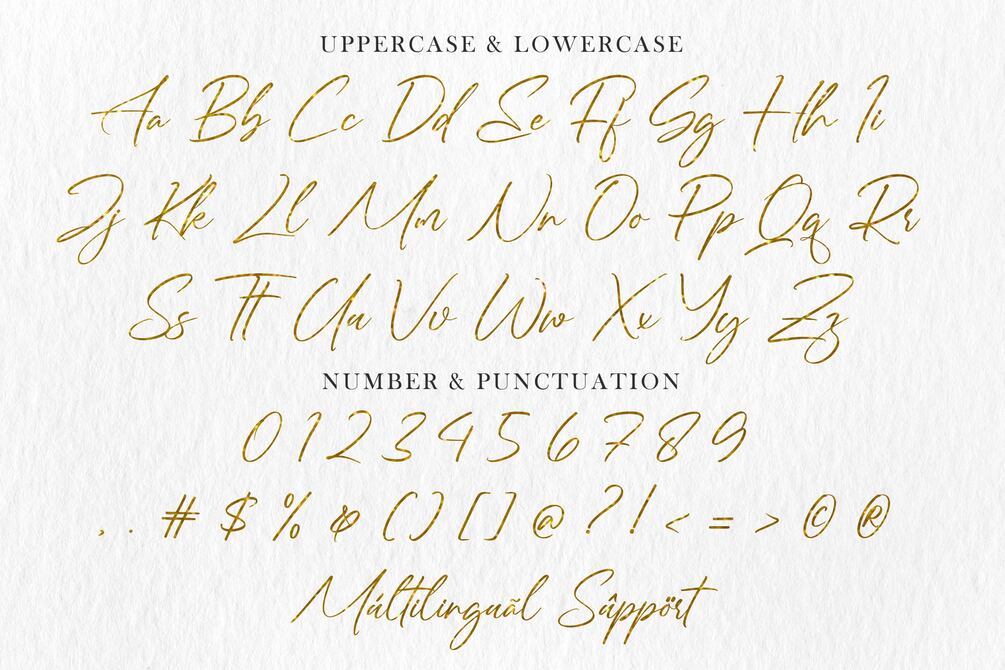 UPPERCASE & LOWERCASE
Aa Bb Cc Dd Ee Ff Gg Hh Ii
Jj Kk Ll Mm Nn Oo Pp Qq Rr
Ss Tt Uu Vv Ww Xx Yy Zz
NUMBER & PUNCTUATION
0 1 2 3 4 5 6 7 8 9
, . # $ % & ( ) [ ] @ ? ! < = > © ®
Múltilinguãl Sûppört